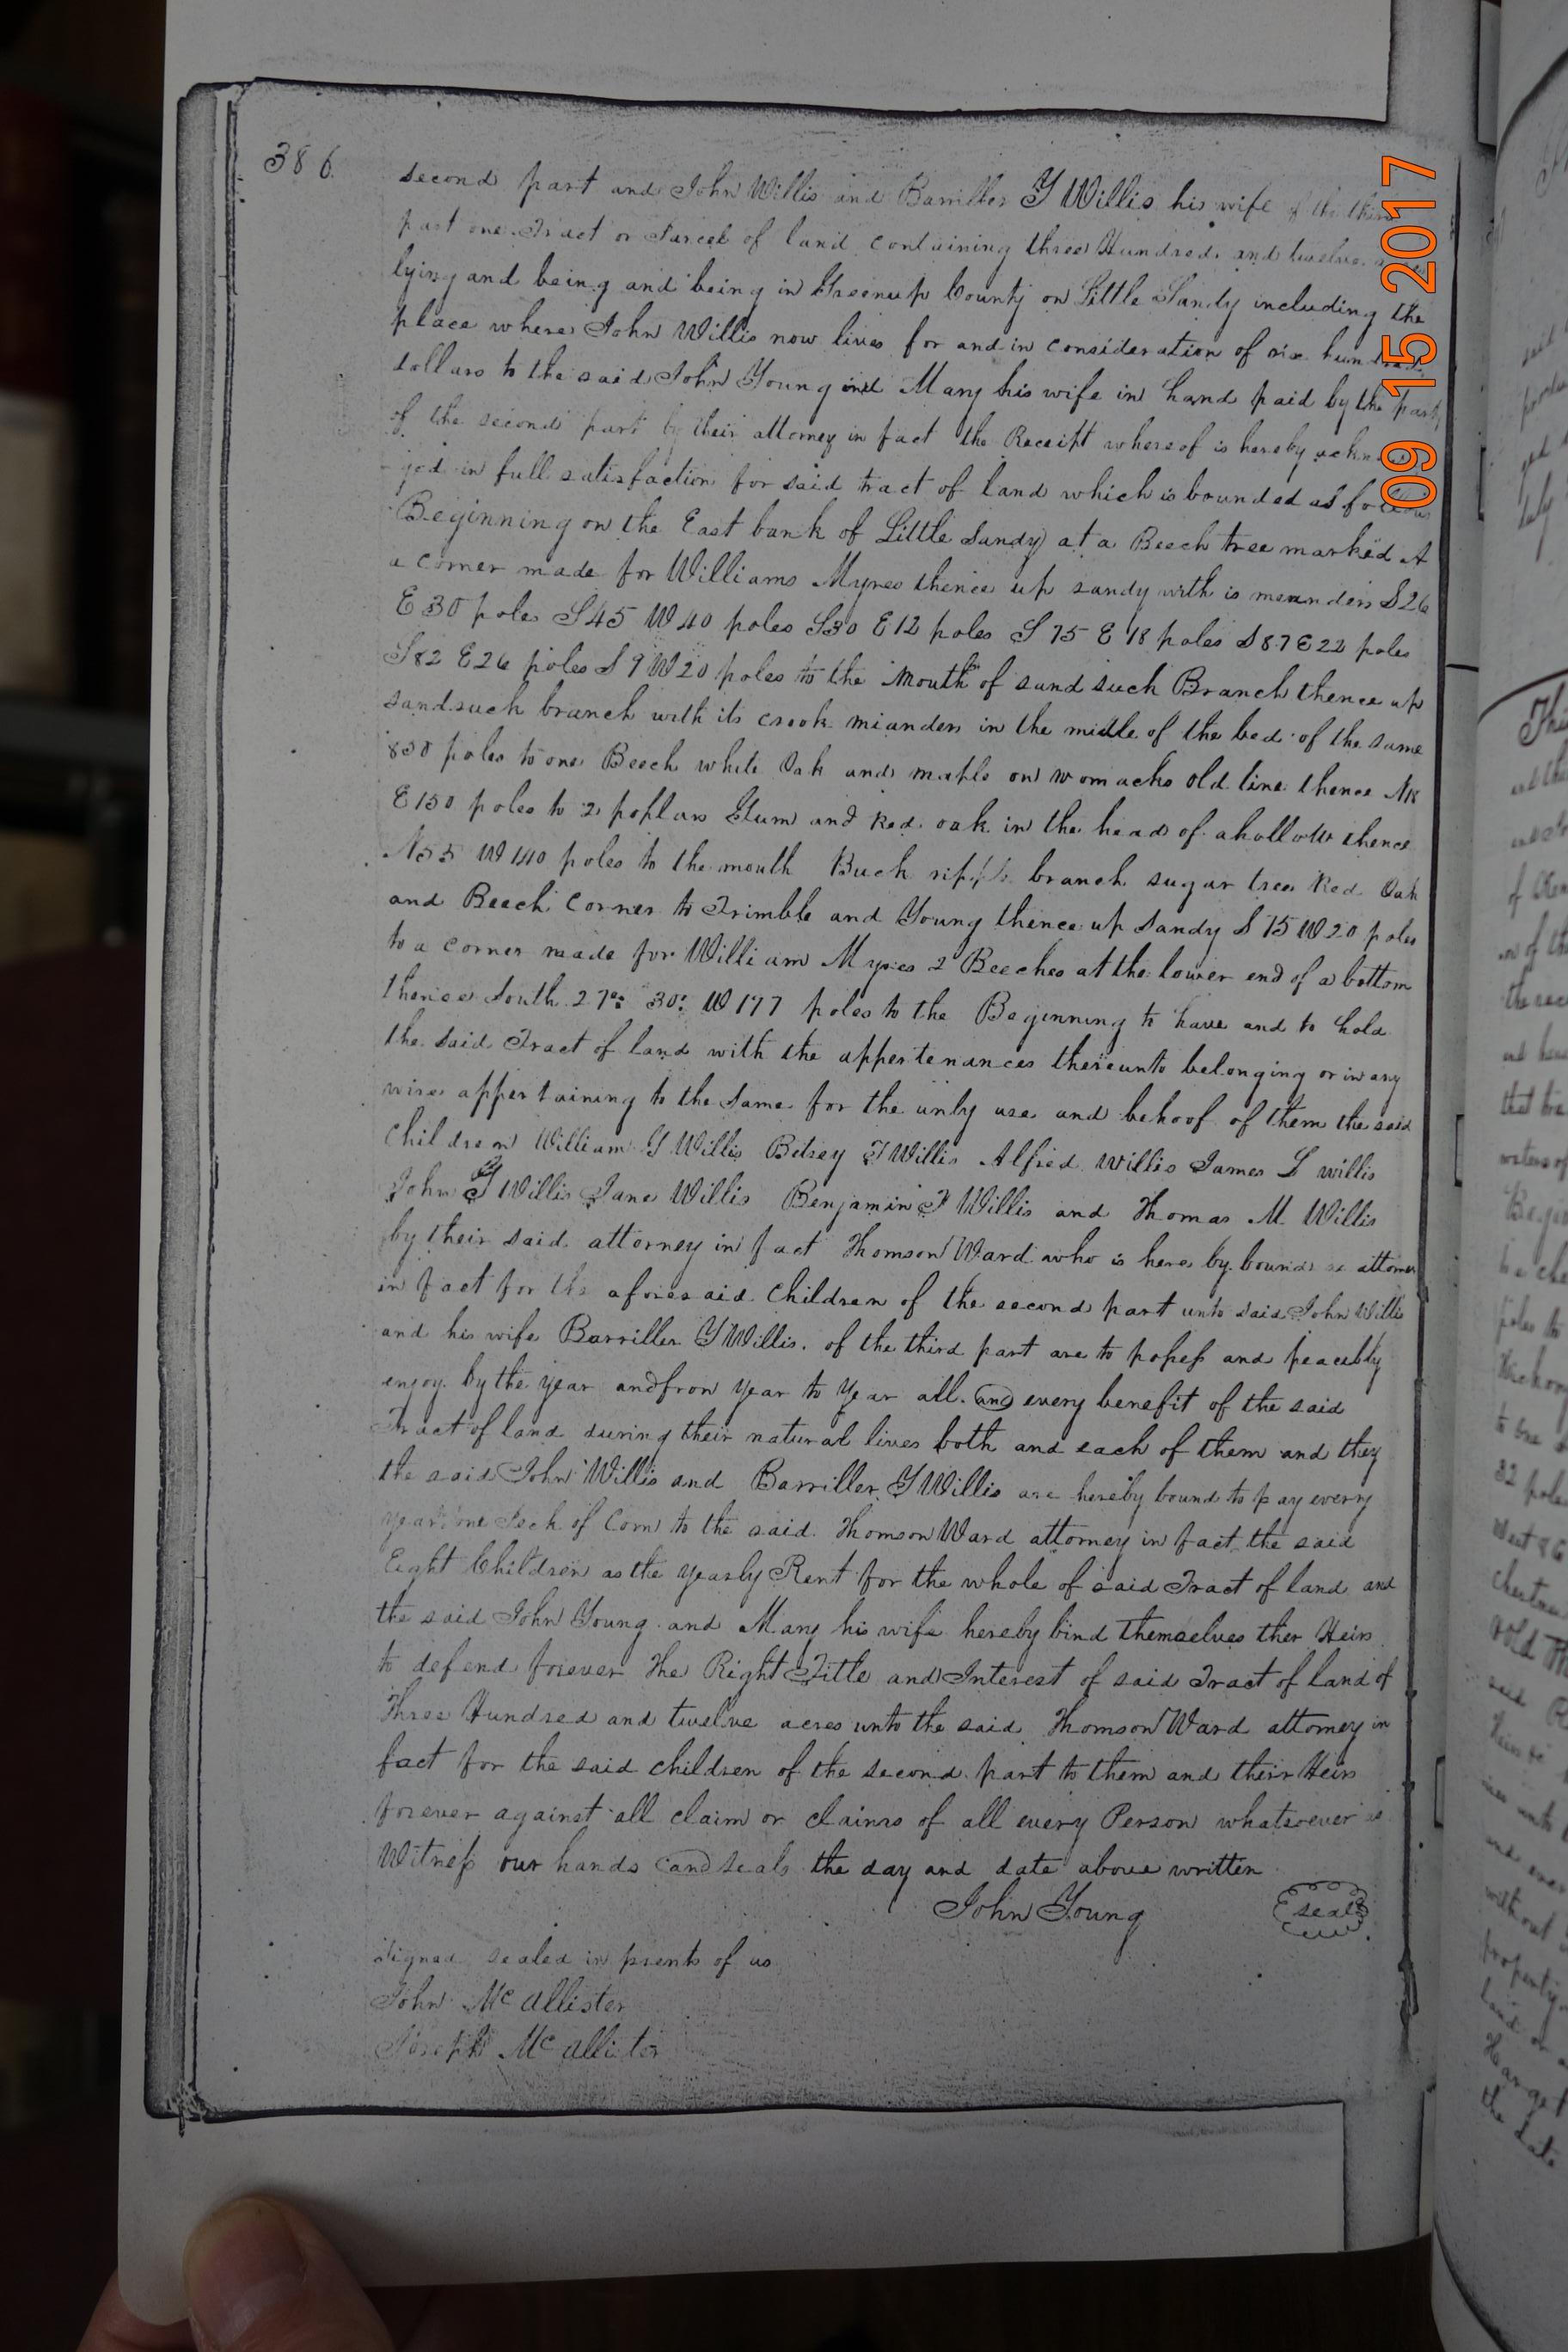 386
second part and John Willis and Barriller Y Willis his wife of the third
part one Tract or Parcel of land containing three Hundred and twelve
lying and being and being in Greenup County on Little Sandy including the
place where John Willis now lives for and in consideration of six hundred
dollars to the said John Young and Mary his wife in hand paid by the part
of the second part by their attorney in fact the Receipt whereof is hereby
ged in full satisfaction for said tract of land which is bounded as follows
Beginning on the East bank of Little Sandy at a Beech tree marked A
a corner made for Williams Myres thence up sandy with is meanders S 26
E 30 poles S 45 W 40 poles S 30 E 12 poles S 75 E 18 poles S 87 E 22 poles
S 82 E 26 poles S 9 W 20 poles to the Mouth of sand such Branch thence up
sandsuch branch with its crook mianders in the middle of the bed of the same
poles to one Beech white Oak and maple on womacks old line thence N
E 150 poles to 2 poplars Gum and Red oak in the head of a hollow thence
N 55 W 140 poles to the mouth Buck branch sugar tree Red Oak
and Beech Corner to Trimble and Young thence up Sandy S 75 W 20 poles
to a corner made for William Myres 2 Beeches at the lower end of a bottom
thence South 27° 30' W 177 poles to the Beginning to have and to hold
the said Tract of land with the appertenances thereunto belonging or in any
wise appertaining to the same for the only use and behoof of them the said
children William Y Willis Betsey T Willis Alfred Willis James L Willis
John Y Willis Jane Willis Benjamin F Willis and Thomas M Willis
by their said attorney in fact Thomson Ward who is here by bound as attorney
in fact for the aforesaid Children of the second part unto said John Willis
and his wife Barriller Y Willis of the third part are to possess and peacebly
enjoy by the year and from year to year all and every benefit of the said
Tract of land during their natural lives both and each of them and they
the said John Willis and Barriller Y Willis are hereby bound to pay every
year one Peck of Corn to the said Thomson Ward attorney in fact the said
Eight Children as the yearly Rent for the whole of said Tract of land and
the said John Young and Mary his wife hereby bind themselves ther Heirs
to defend forever the Right Title and Interest of said Tract of land of
Three Hundred and twelve acres unto the said Thomson Ward attorney in
fact for the said children of the second part to them and their Heirs
forever against all claim or claims of all every Person whatsoever
Witness our hands and seals the day and date above written
John Young seal
Signed sealed in prsents of us
John McAllister
Joseph McAllister
09 15 2017